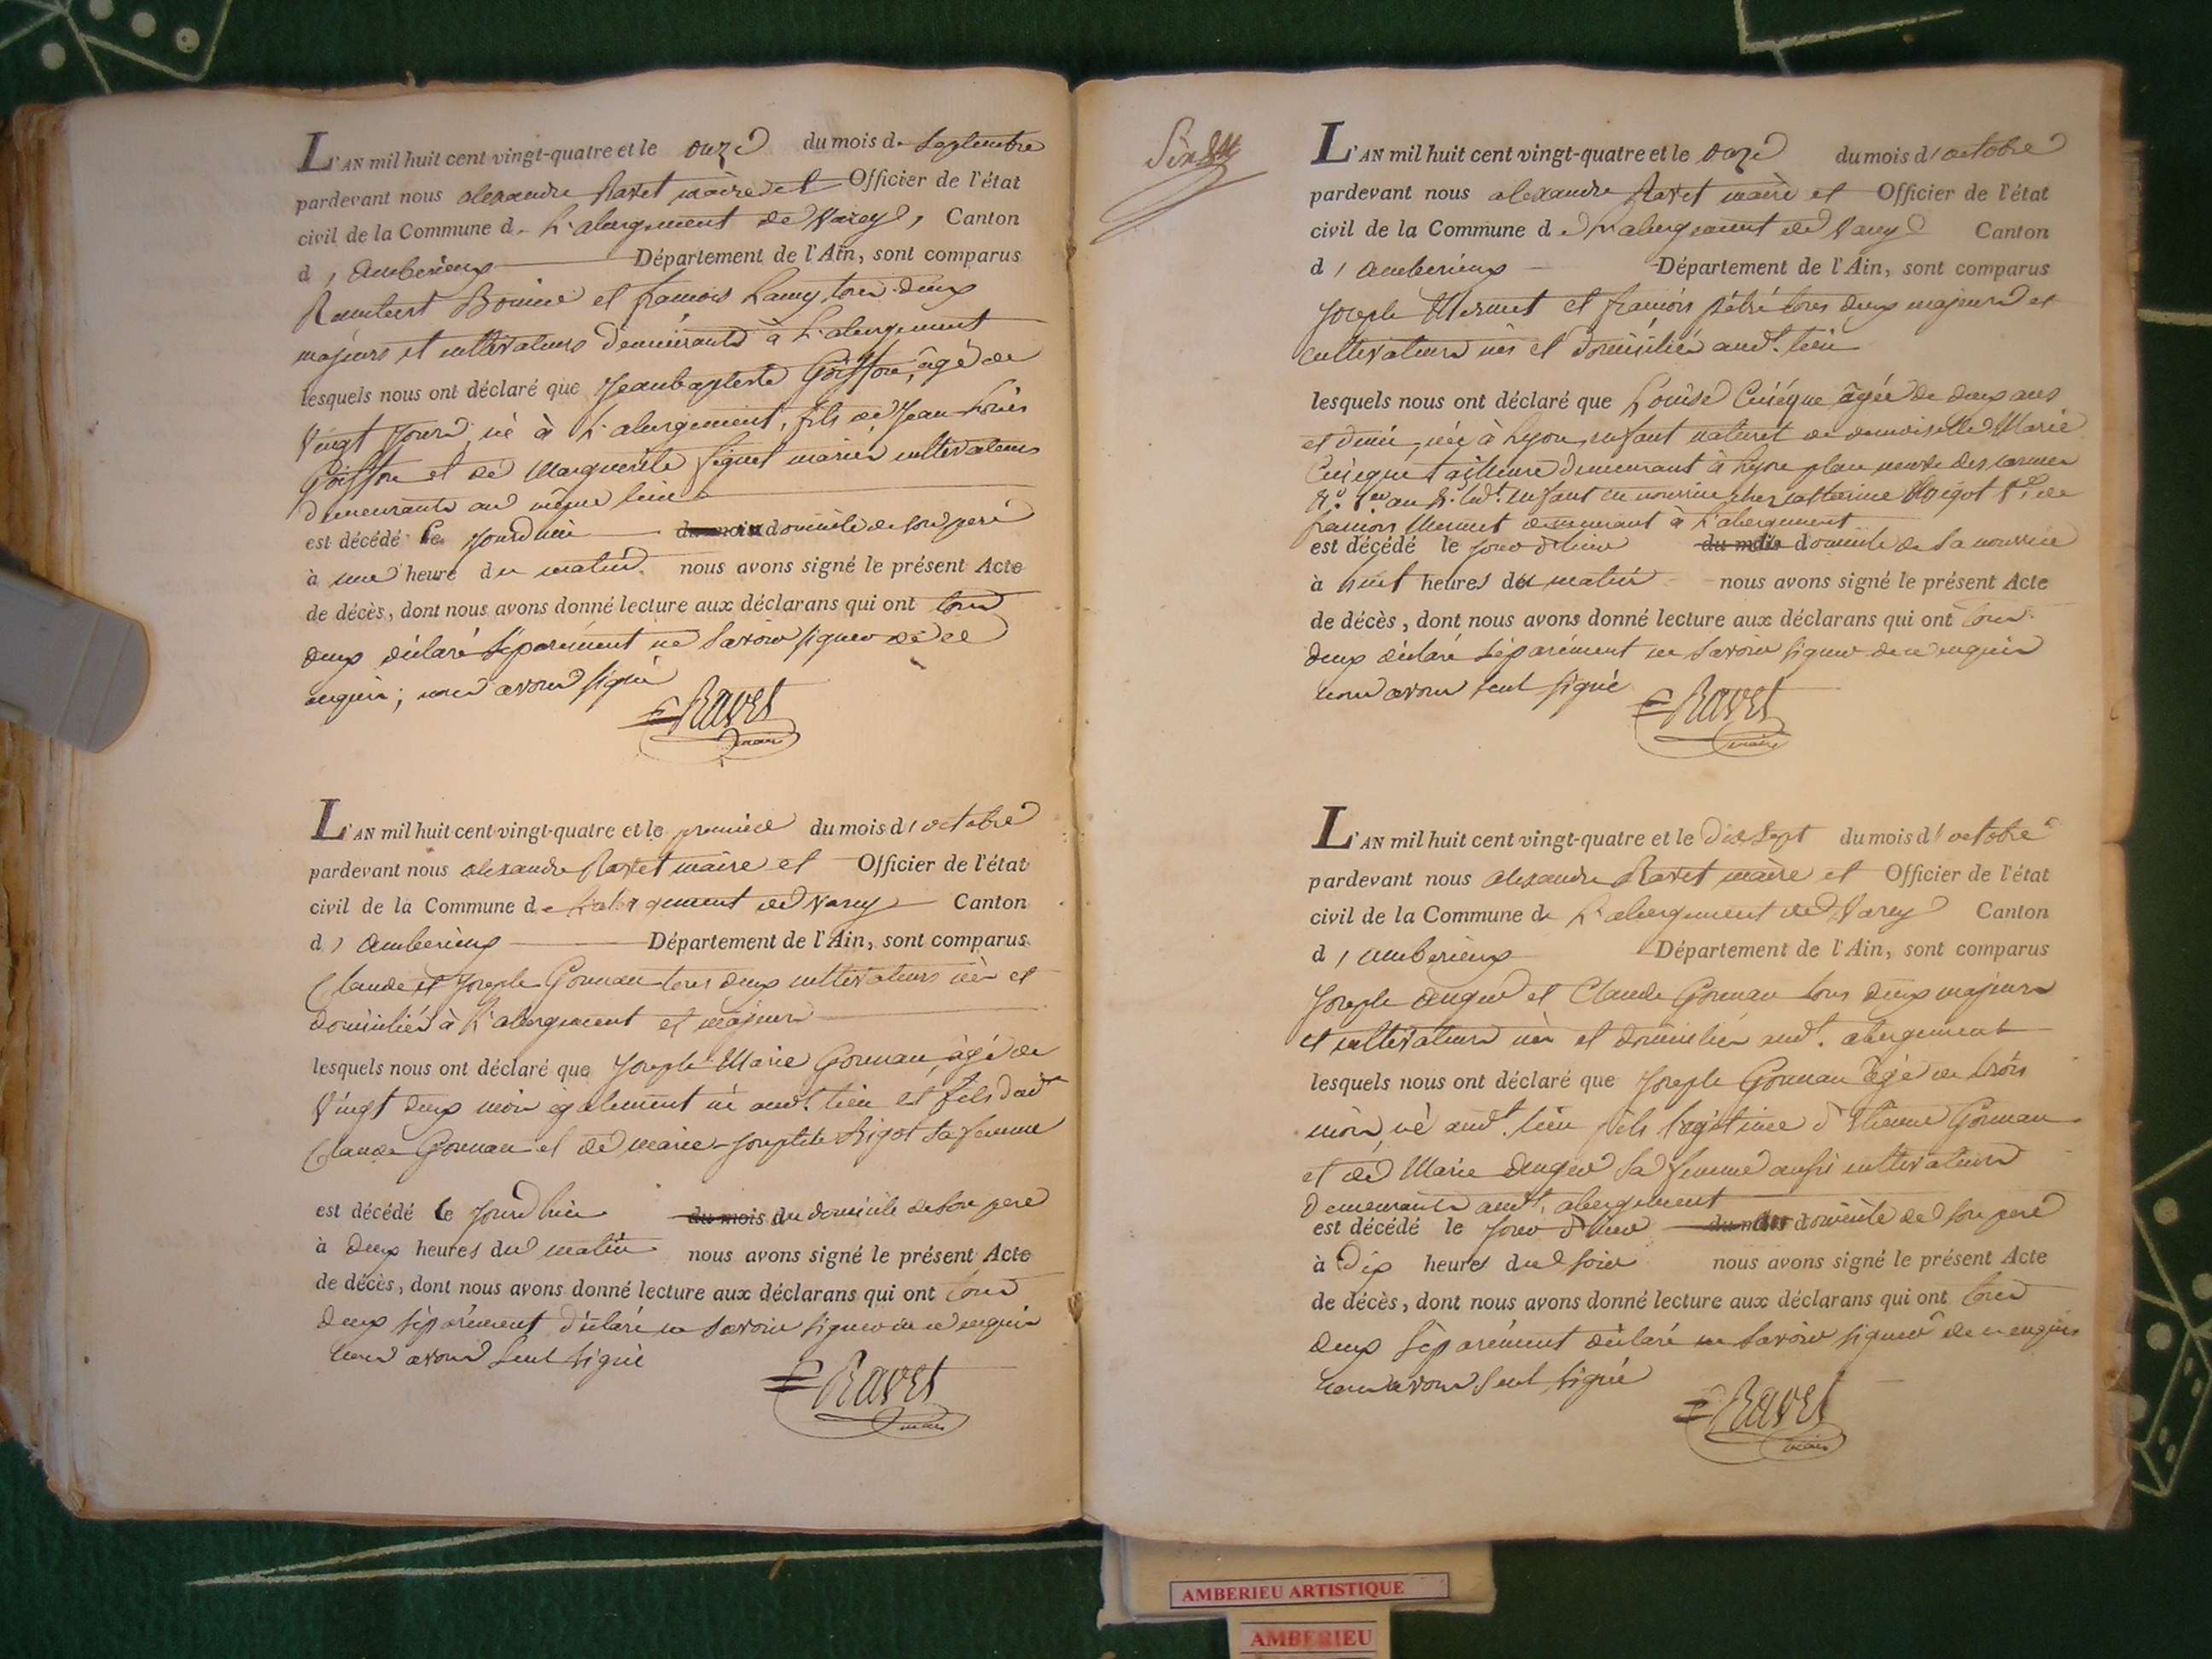 L'AN mil huit cent vingt-quatre et le onze du mois de Septembre
pardevant nous alexandre Ravet maire et Officier de l'état
civil de la Commune de L'abergement de Varey, Canton
d'amberieux Département de l'Ain, sont comparus
Rambert Bonine et francois Lamy tous deux
majeurs et cultivateurs demeurants à L'abergement
lesquels nous ont déclaré que Jeanbaptiste Goiffon, âgé de
vingt jours, né à L'abergement, fils de Jean Louis
Goiffon et de Marguerite figuet mariés cultivateurs
demeurants au même lieu
est décédé le jourdhui du mois domicile de son pere
à une heure du matin nous avons signé le présent Acte
de décès, dont nous avons donné lecture aux déclarans qui ont tous
deux déclaré séparément ne savoir signer de ce
enquis; nous avons signé
Ravet
maire
L'AN mil huit cent vingt-quatre et le premier du mois d'octobre
pardevant nous alexandre Ravet maire et Officier de l'état
civil de la Commune de L'abergement de Varey Canton
d'amberieux Département de l'Ain, sont comparus
Claude et Joseph Gonnan tous deux cultivateurs nés et
domiciliés à L'abergement et majeurs
lesquels nous ont déclaré que Joseph Marie Gonnan, âgé de
vingt deux mois également né audt. lieu et fils dud
Claude Gonnan et de marie-Josephte Rigot sa femme
est décédé le jourdhui du mois du domicile de son pere
à deux heures du matin nous avons signé le présent Acte
de décès, dont nous avons donné lecture aux déclarans qui ont tous
deux séparément déclaré ne savoir signer de ce enquis
nous avons seul signé
Ravet
maire
L'AN mil huit cent vingt-quatre et le onze du mois d'octobre
pardevant nous alexandre Ravet maire et Officier de l'état
civil de la Commune de L'abergement de Varey Canton
d'amberieux Département de l'Ain, sont comparus
Joseph Mermet et francois pétré tous deux majeurs et
cultivateurs nés et domiciliés audt. lieu
lesquels nous ont déclaré que Louise Cuiéque âgée de deux ans
et demi, née à Lyon, enfant naturel de demoiselle Marie
Cuiéque tailleuse demeurant à Lyon place neuve des carmes
enfant en nourrice chez catherine Ve. de
francois Mermet demeurant à L'abergement
est décédé le jour d'hier du mois domicile de sa nourrice
à huit heures du matin nous avons signé le présent Acte
de décès, dont nous avons donné lecture aux déclarans qui ont tous
deux déclaré séparément ne savoir signer de ce enquis
nous avons seul signé
Ravet
maire
L'AN mil huit cent vingt-quatre et le dix Sept du mois d'octobre
pardevant nous alexandre Ravet maire et Officier de l'état
civil de la Commune de L'abergement de Varey Canton
d'amberieux Département de l'Ain, sont comparus
Joseph auger et Claude Gonnan tous deux majeurs
et cultivateurs nés et domiciliés audt. abergement
lesquels nous ont déclaré que Joseph Gonnan âgé de trois
mois, né audt. lieu fils légitime d'Etienne Gonnan
et de Marie auger sa femme aussi cultivateurs
demeurants audt. abergement
est décédé le jour d'hier du mois domicile de son pere
à dix heures du soir nous avons signé le présent Acte
de décès, dont nous avons donné lecture aux déclarans qui ont tous
deux séparément déclaré ne savoir signer de ce enquis
nous avons seul signé
Ravet
maire
AMBERIEU ARTISTIQUE
AMBERIEU